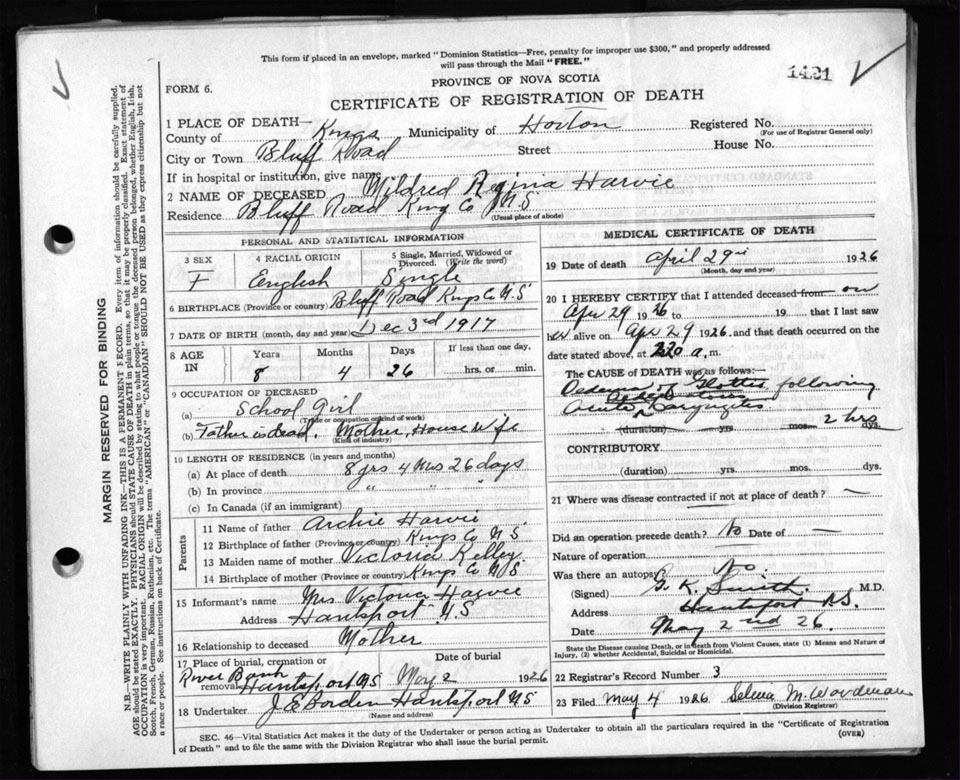 This form if placed in an envelope, marked "Dominion Statistics—Free, penalty for improper use $300," and properly addressed
will pass through the Mail "FREE."
1421
FORM 6.
PROVINCE OF NOVA SCOTIA
CERTIFICATE OF REGISTRATION OF DEATH
1 PLACE OF DEATH—
County of Kings Municipality of Horton Registered No.
(For use of Registrar General only)
City or Town Bluff Road Street House No.
If in hospital or institution, give name
2 NAME OF DECEASED Mildred Regina Harvie
Residence Bluff Road Kings Co N.S
(Usual place of abode)
PERSONAL AND STATISTICAL INFORMATION
3 SEX 4 RACIAL ORIGIN 5 Single, Married, Widowed or Divorced. (Write the word)
F English Single
6 BIRTHPLACE (Province or country) Bluff Road Kings Co N.S
7 DATE OF BIRTH (month, day and year) Dec 3rd 1917
8 AGE IN Years Months Days If less than one day,
8 4 26 hrs. or min.
9 OCCUPATION OF DECEASED
(a) School Girl
(Trade or occupation or kind of work)
(b) Father is dead. Mother, House wife
(Kind of industry)
10 LENGTH OF RESIDENCE (in years and months)
(a) At place of death 8 yrs 4 mos 26 days
(b) In province " " "
(c) In Canada (if an immigrant)
Parents
11 Name of father Archie Harvie
12 Birthplace of father (Province or country) Kings Co N S
13 Maiden name of mother Victoria Kelley
14 Birthplace of mother (Province or country) Kings Co N S
15 Informant's name Mrs Victoria Harvie
Address Hantsport N.S
16 Relationship to deceased Mother
17 Place of burial, cremation or removal Date of burial
River Bank
Hantsport NS May 2 1926
18 Undertaker J E Borden Hantsport NS
(Name and address)
MEDICAL CERTIFICATE OF DEATH
19 Date of death April 29th 1926
(Month, day and year)
20 I HEREBY CERTIFY that I attended deceased from on
Apr 29 1926 to 19 that I last saw
her alive on Apr 29 1926. and that death occurred on the
date stated above, at 2.20 a. m.
The CAUSE OF DEATH was as follows:
Oedema of Glottis following
acute Laryngitis
(duration) yrs. mos. 2 hrs dys.
CONTRIBUTORY
(duration) yrs. mos. dys.
21 Where was disease contracted if not at place of death? —
Did an operation precede death? No Date of —
Nature of operation
Was there an autopsy? No.
(Signed) K. Smith M.D.
Address Hantsport N.S.
Date May 2nd 26.
State the Disease causing Death, or in death from Violent Causes, state (1) Means and Nature of
Injury, (2) whether Accidental, Suicidal or Homicidal.
22 Registrar's Record Number 3
23 Filed May 4 1926 Selena M. Woodman
(Division Registrar)
SEC. 46—Vital Statistics Act makes it the duty of the Undertaker or person acting as Undertaker to obtain all the particulars required in the "Certificate of Registration
of Death" and to file the same with the Division Registrar who shall issue the burial permit.
(OVER)
MARGIN RESERVED FOR BINDING
N.B.—WRITE PLAINLY WITH UNFADING INK—THIS IS A PERMANENT RECORD. Every item of information should be carefully supplied.
AGE should be stated EXACTLY. PHYSICIANS should STATE CAUSE OF DEATH in plain terms, so that it may be properly classified. Exact statement of
OCCUPATION is very important. RACIAL ORIGIN will be described by stating to what people or tongue the deceased person belonged, whether English, Irish,
Scotch, French, German, Russian, Ruthenian, etc. The terms "AMERICAN" or "CANADIAN" SHOULD NOT BE USED as they express citizenship but not
a race or people. See instructions on back of Certificate.